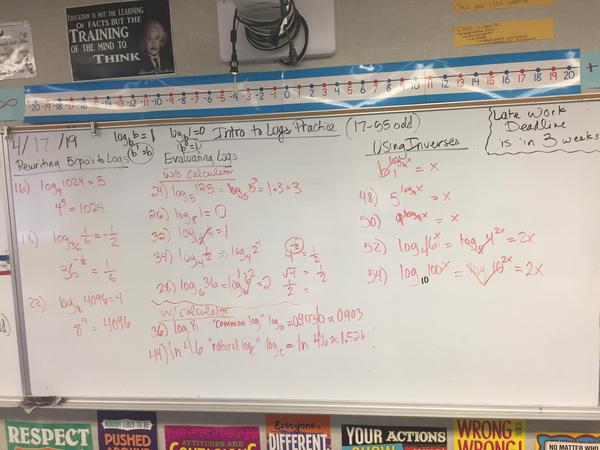 EDUCATION IS NOT THE LEARNING
OF FACTS BUT THE
TRAINING
OF THE MIND TO
THINK
-20 -19 -18 -17 -16 -15 -14 -13 -12 -11 -10 -9 -8 -7 -6 -5 -4 -3 -2 -1 0 1 2 3 4 5 6 7 8 9 10 11 12 13 14 15 16 17 18 19 20
4/17/19
log_b b = 1
(b¹=b)
log_b 1 = 0
(b⁰=1)
Intro to Logs Practice (17-55 odd)
Late Work
Deadline
is in 3 weeks
Rewriting Expo's to Logs
16) log₄ 1024 = 5
4⁵ = 1024
18) log₃₆ 1/6 = -1/2
36^(-1/2) = 1/6
22) log₈ 4096 = 4
8⁴ = 4096
Evaluating Logs
w/o calculator
24) log₅ 125 = log₅ 5³ = 1·3 = 3
26) log 1 = 0
32) = 1
34) log₄ 1/2 ⇒ log₄ 2⁻¹
4 = 1/2
√4 = 1/2
1/2 =
28) log₆ 36 = log₆ 6² = 2
w/ calculator
36) log 8 "common log" log₁₀ = 0.9030 ≈ 0.903
44) ln 4.6 "natural log" log_e = ln 4.6 ≈ 1.526
Using Inverses
b^(log_b x) = x
48) 5^(log₅ x) = x
50) 9^(log₉ x) = x
52) log₄ 16ˣ = log₄ 4^(2x) = 2x
54) log₁₀ 100ˣ = log 10^(2x) = 2x
RESPECT
NOBODY LIKES TO BE
PUSHED
AROUND
ATTITUDES ARE
Everyone is
DIFFERENT
YOUR ACTIONS
WRONG
WRONG
NO MATTER WHO